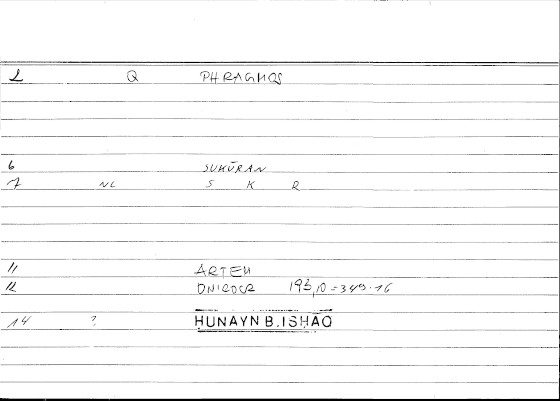 2 Q PHRAGMOS
6 SUKŪRAN
7 NL S K R
11 ARTEM
12 ONIROCR 193,10 = 349.16
14 ? HUNAYN B. ISHĀQ